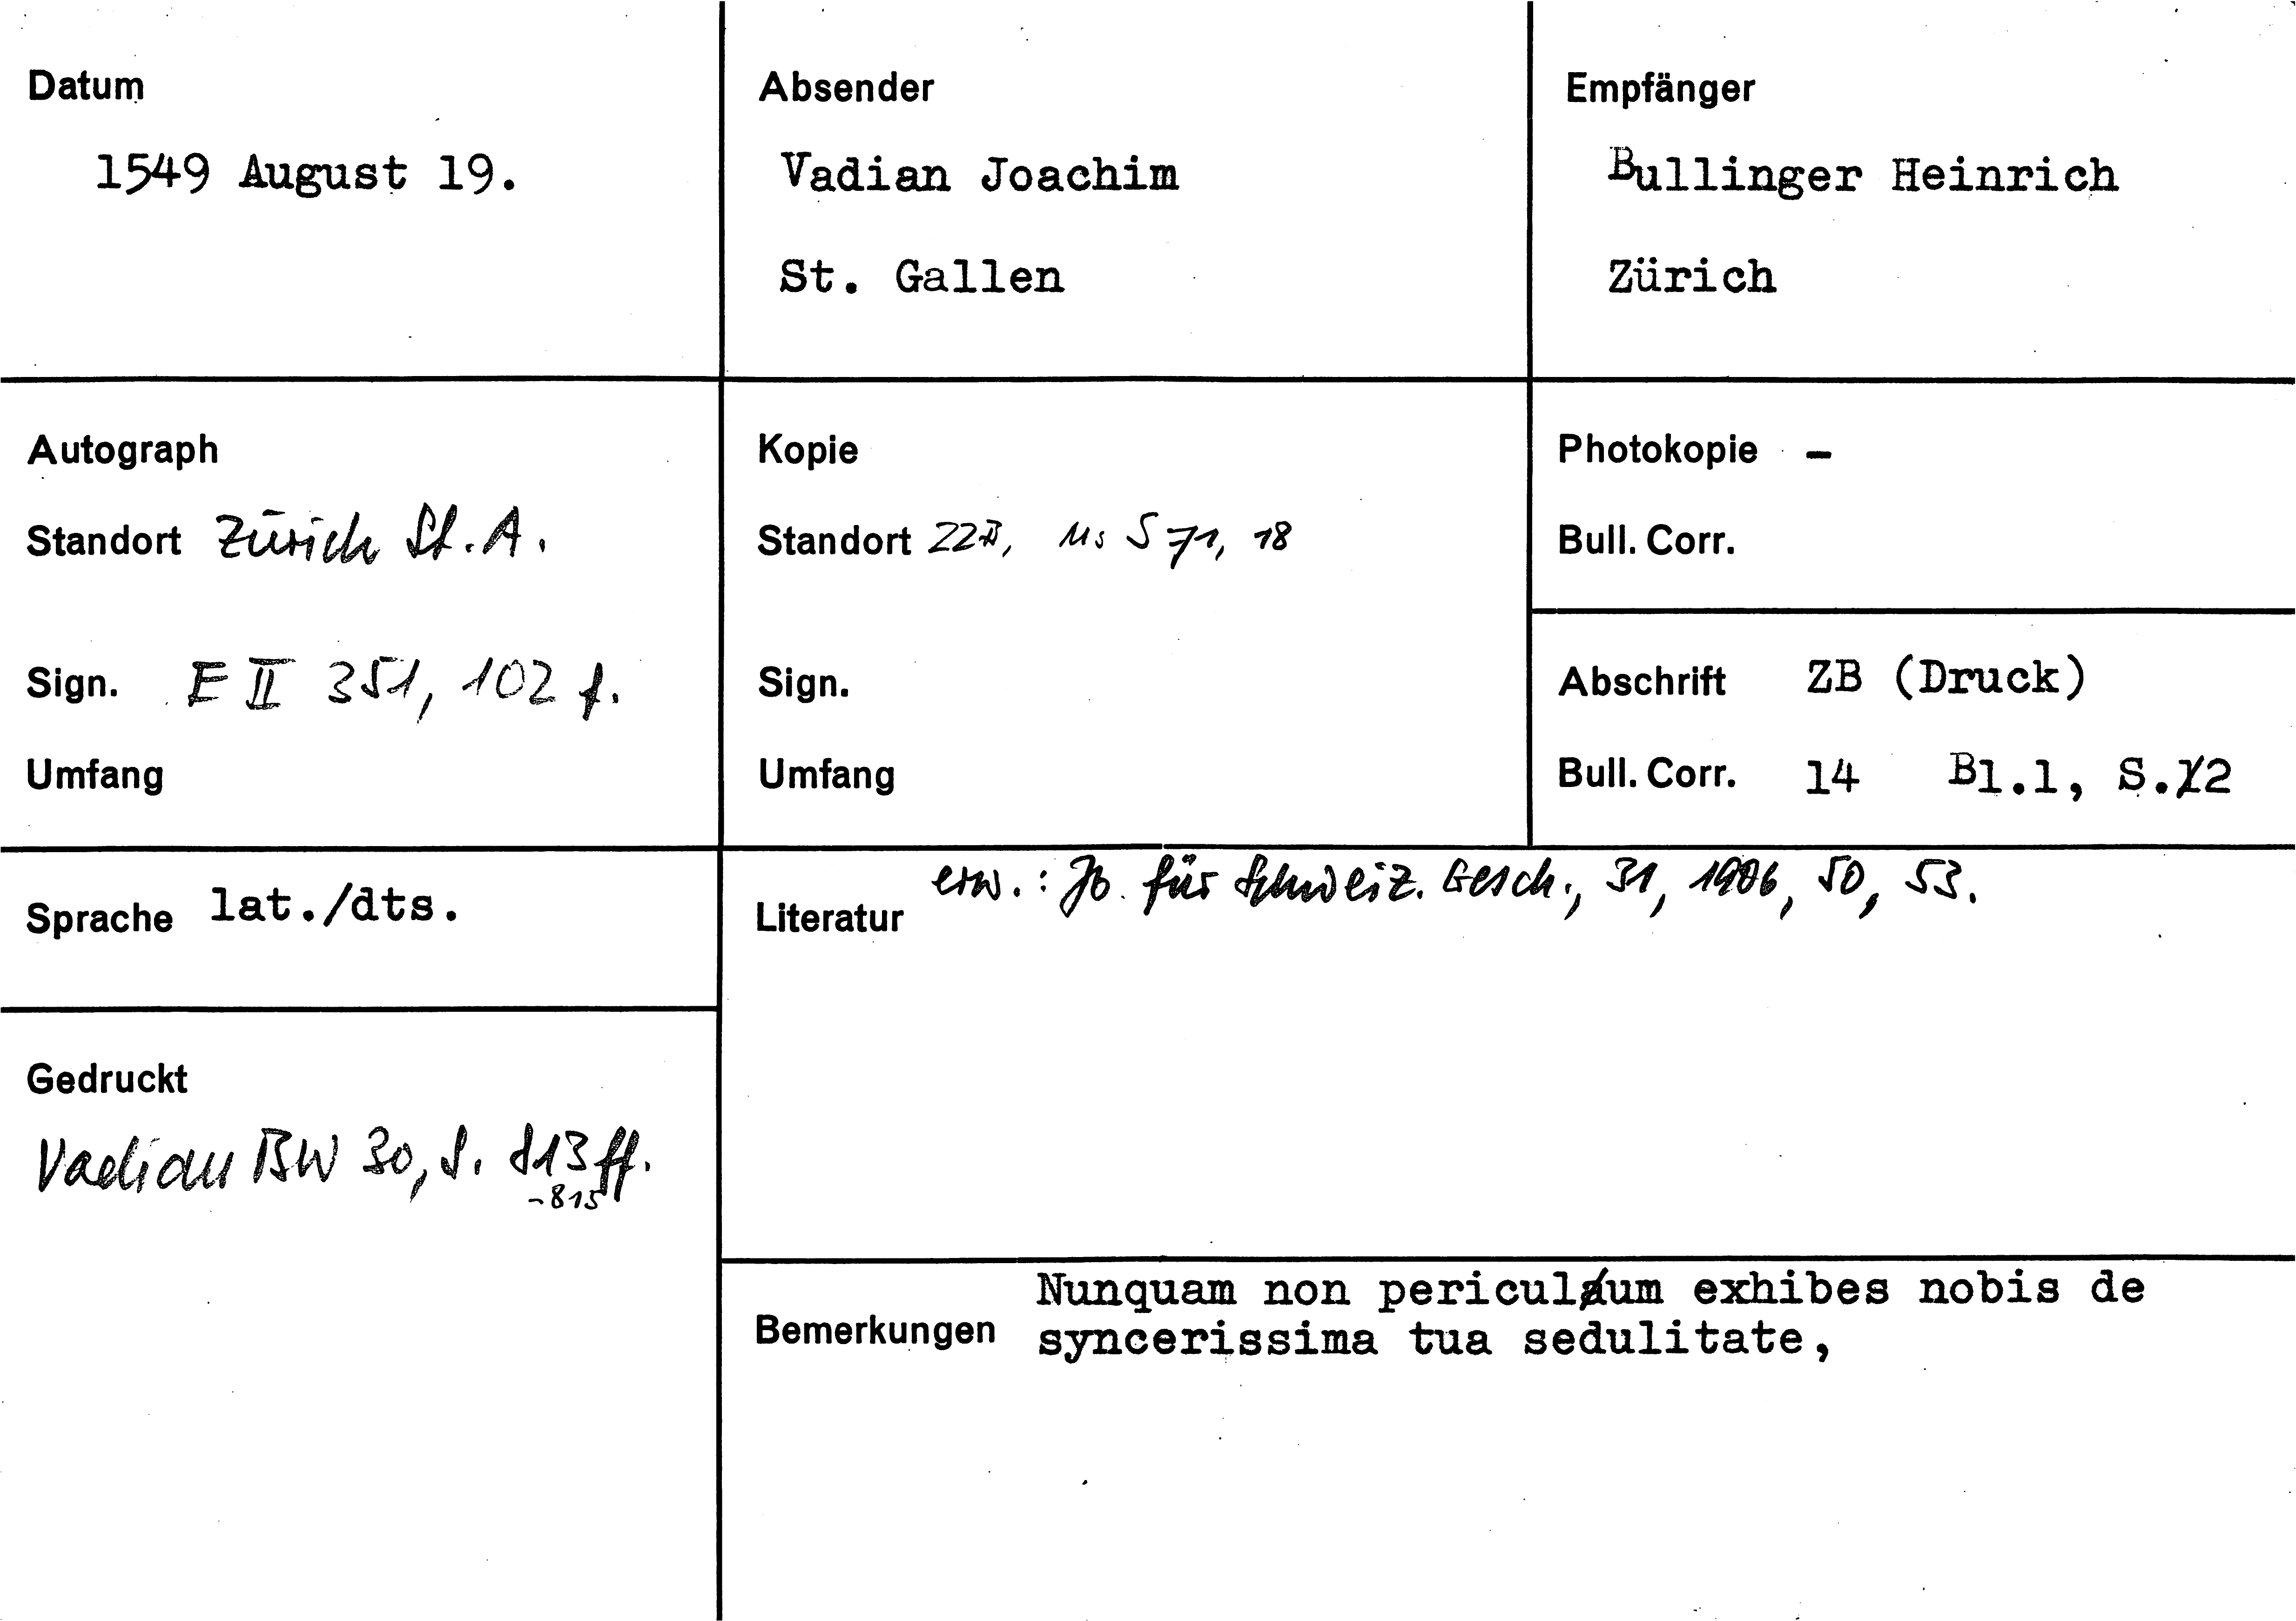 Datum
1549 August 19.
Absender
Vadian Joachim
St. Gallen
Empfänger
Bullinger Heinrich
Zürich
Autograph
Standort Zürich St. A.
Sign. E II 351, 102 f.
Umfang
Kopie
Standort ZZB, Ms S 71, 18
Sign.
Umfang
Photokopie -
Bull. Corr.
Abschrift ZB (Druck)
Bull. Corr. 14 Bl.1, S.2
Sprache lat./dts.
Literatur erw.: Jb. für Schweiz. Gesch., 31, 1906, 50, 53.
Gedruckt
Vadian BW 30, S. 813 ff.
-815
Bemerkungen
Nunquam non periculum exhibes nobis de
syncerissima tua sedulitate,